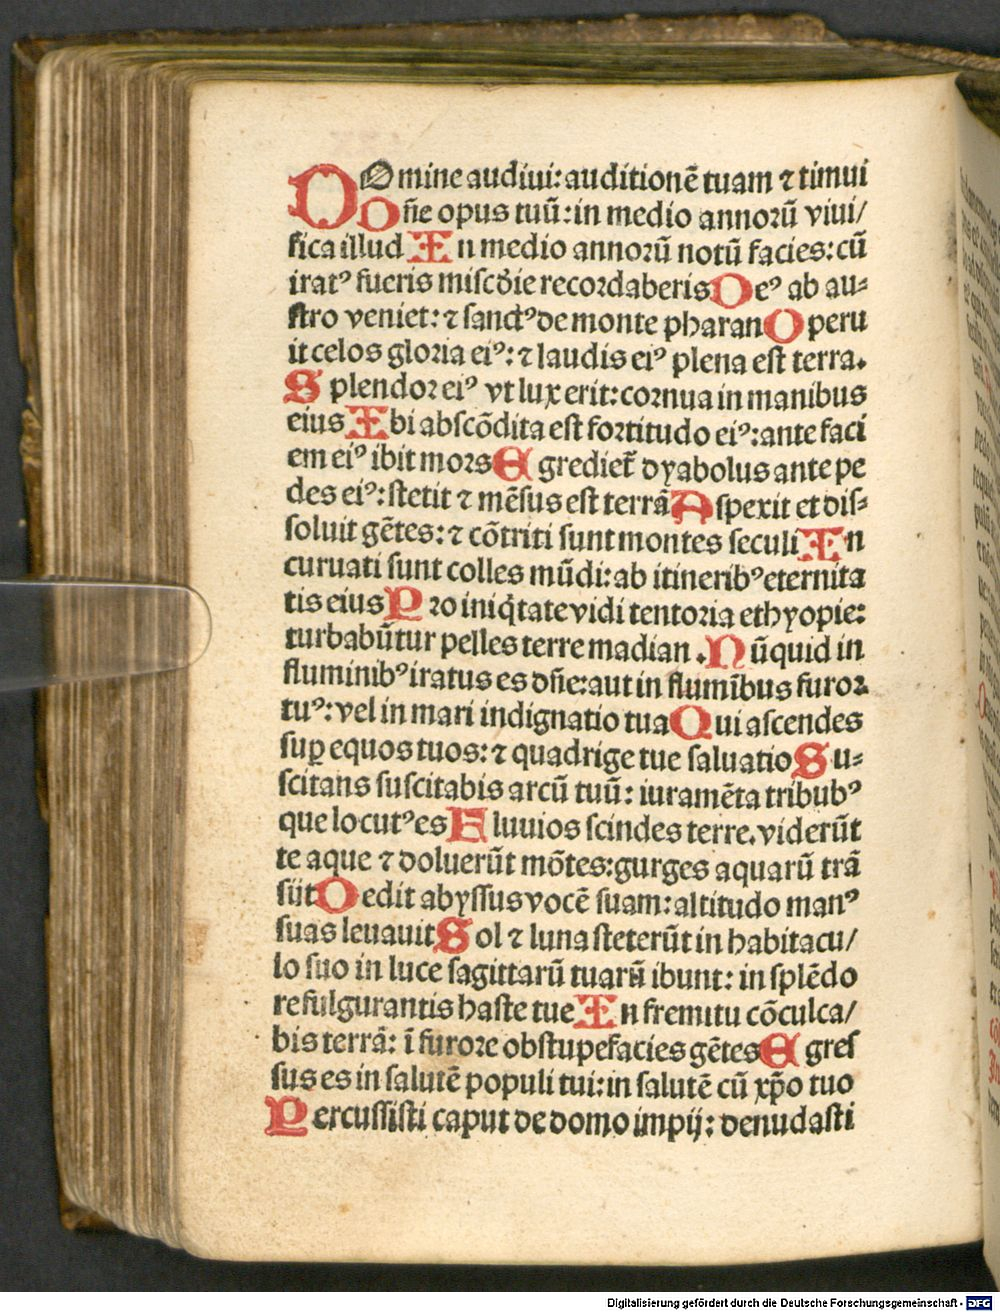 DOmine audiui: auditionē tuam ⁊ timui
Dn̄e opus tuū: in medio annorū viui/
fica illud In medio annorū notū facies: cū
iratꝰ fueris miſcd̄ie recordaberis Deꝰ ab au⸗
ſtro veniet: ⁊ ſanctꝰ de monte pharan Operu
it celos gloria eiꝰ: ⁊ laudis eiꝰ plena eſt terra.
Splendor eiꝰ vt lux erit: cornua in manibus
eius Ibi abſcōdita eſt fortitudo eiꝰ: ante faci
em eiꝰ ibit mors Egrediet᷑ dyabolus ante pe
des eiꝰ: ſtetit ⁊ mēſus eſt terrā Aſpexit et diſ⸗
ſoluit gētes: ⁊ cōtriti ſunt montes ſeculi In
curuati ſunt colles mūdi: ab itineribꝰ eternita
tis eius Pro iniq̄tate vidi tentoria ethyopie:
turbabūtur pelles terre madian. Nūquid in
fluminibꝰ iratus es dn̄e: aut in flumībus furor
tuꝰ: vel in mari indignatio tua Qui aſcendes
ſuꝑ equos tuos: ⁊ quadrige tue ſaluatio Su⸗
ſcitans ſuſcitabis arcū tuū: iuramēta tribubꝰ
que locutꝰ es Fluuios ſcindes terre. viderūt
te aque ⁊ doluerūt mōtes: gurges aquarū trā
ſijt Dedit abyſſus vocē ſuam: altitudo manꝰ
ſuas leuauit Sol ⁊ luna ſteterūt in habitacu/
lo ſuo in luce ſagittarū tuarū ibunt: in ſplēdo
re fulgurantis haſte tue In fremitu cōculca/
bis terrā: ī furore obſtupefacies gētes Egreſ
ſus es in ſalutē populi tui: in ſalutē cū xp̄o tuo
Percuſſiſti caput de domo impij: denudaſti
Digitalisierung gefördert durch die Deutsche Forschungsgemeinschaft - DFG